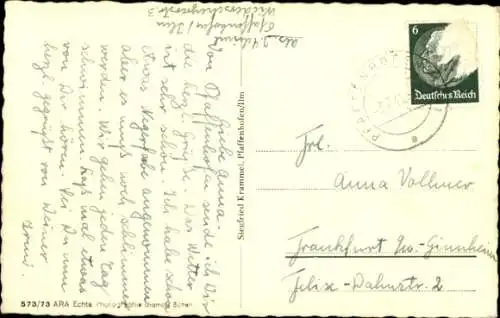 Abs. J. Heinrich
Pfaffenhofen/Ilm
Niederscheyererstr. 3
Liebe Anna
Von Pfaffenhofen sende ich Dir
die herzl. Grüße. Das Wetter
ist sehr schön. Ich habe schon
etwas Negerfarbe angenommen
aber es muß noch schlimmer
werden. Wir gehen jeden Tag
schwimmen. Laß mal etwas
von Dir hören. Sei Du nun
herzl. gegrüßt von Deiner
573/73 ARA Echte Photographie
Siegfried Krammel, Pfaffenhofen/Ilm
6
Deutsches Reich
Frl.
Anna Vollmer
Frankfurt Ginnheim
Felix-Dahnstr. 2